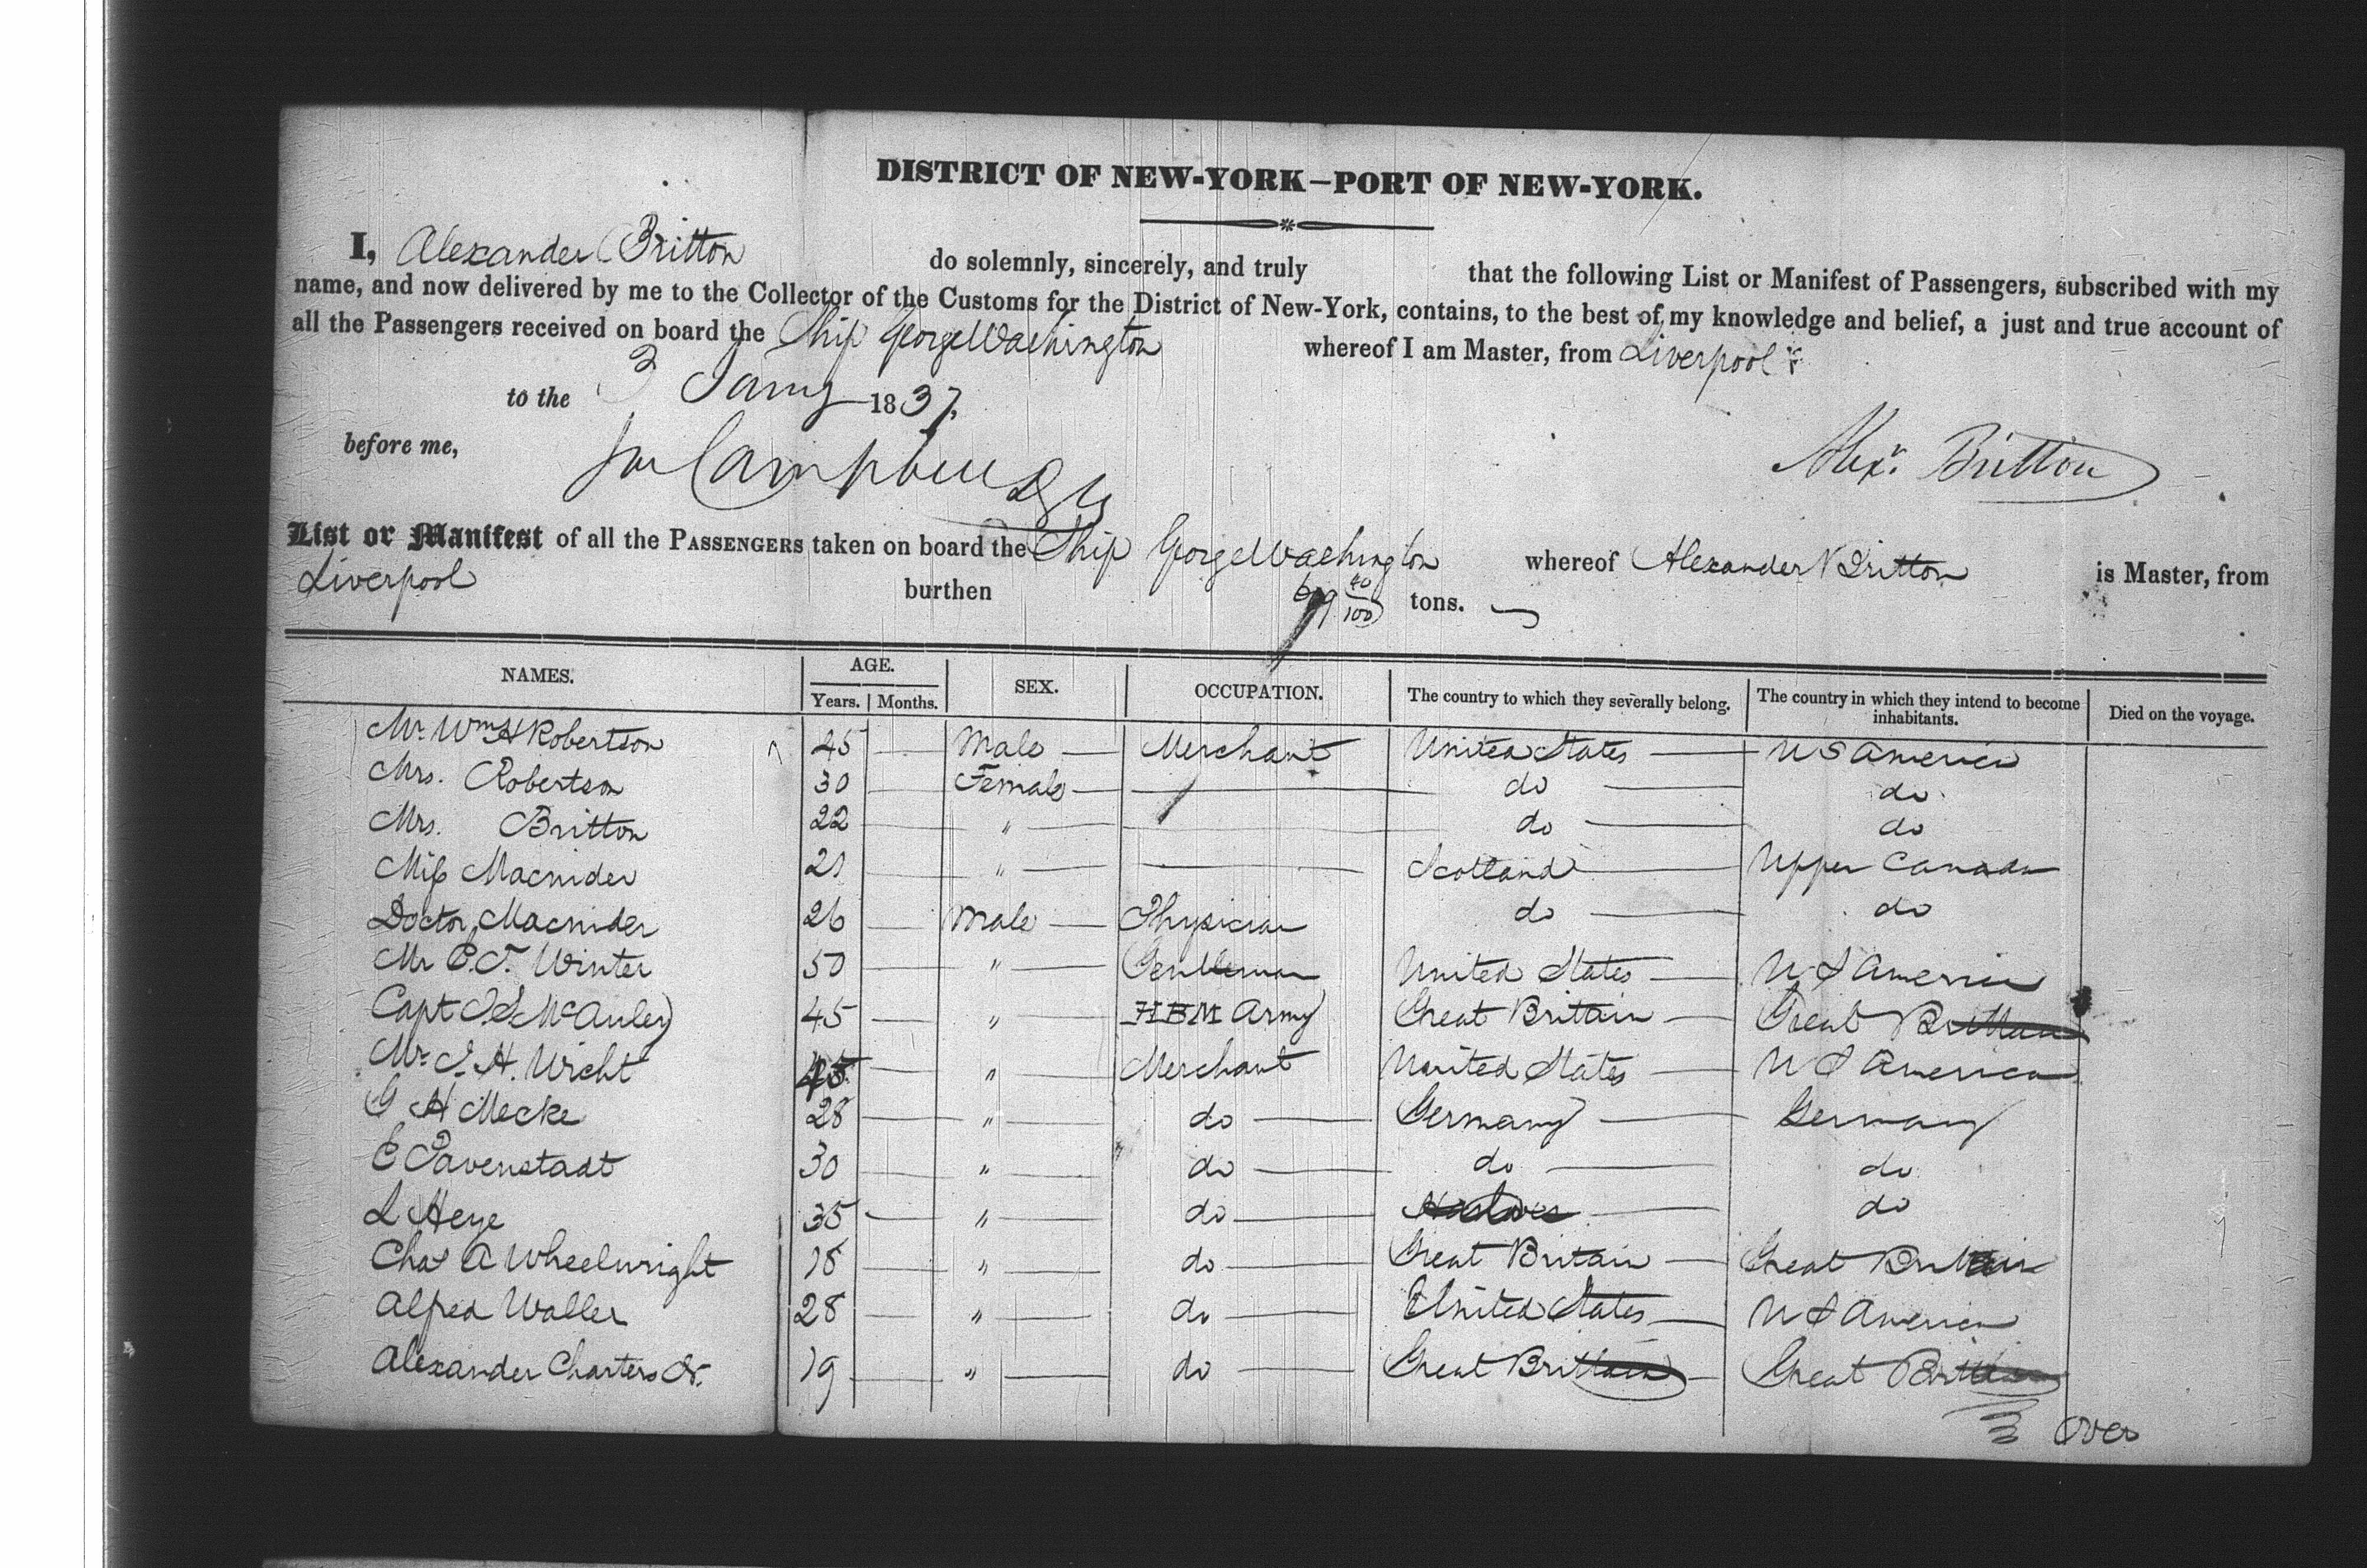 DISTRICT OF NEW-YORK—PORT OF NEW-YORK.
I, Alexander Britton do solemnly, sincerely, and truly that the following List or Manifest of Passengers, subscribed with my
name, and now delivered by me to the Collector of the Customs for the District of New-York, contains, to the best of my knowledge and belief, a just and true account of
all the Passengers received on board the Ship George Washington whereof I am Master, from Liverpool
to the 3 Jany 1837.
before me, Campbell Alexr. Britton
List or Manifest of all the PASSENGERS taken on board the Ship George Washington whereof Alexander Britton is Master, from
Liverpool burthen 40/100 tons.
NAMES. AGE. SEX. OCCUPATION. The country to which they severally belong. The country in which they intend to become inhabitants. Died on the voyage.
Years. Months.
Mr. Wm H Robertson 45 Male Merchant United States U S America
Mrs. Robertson 30 Female do do
Mrs. Britton 22 " do do
Miss Macnider 21 " Scotland Upper Canada
Doctor Macnider 26 Male Physician do do
Mr C.T. Winter 50 " Gentleman United States U S America
Capt McAuley 45 " HBM Army Great Brittain Great Brittain
Mr. J. H. Wicht 45 " Merchant United States U S America
G H Mecke 28 " do Germany Germany
E Pavenstadt 30 " do do do
L Heye 35 " do do
Chas A Wheelwright 18 " do Great Britain Great Brittain
Alfred Waller 28 " do United States U S America
Alexander Charters 19 " do Great Brittain Great Brittain
Over